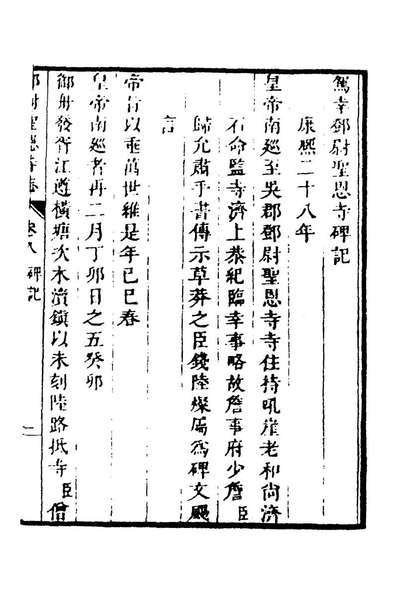 駕幸鄧尉聖恩寺碑記
康熙二十八年
皇帝南巡至吳郡鄧尉聖恩寺寺住持吼崖老和尚濟
石命監寺濟上恭紀臨幸事略故詹事府少詹臣
歸允肅手書傳示草莽之臣錢陸燦屬為碑文颺
言
帝旨以垂萬世維是年己巳春
皇帝南巡者再二月丁卯日之五癸卯
御舟發胥江遵橫塘次木瀆鎮以未刻陸路抵寺臣僧
鄧尉聖恩寺志
卷八 碑記
二